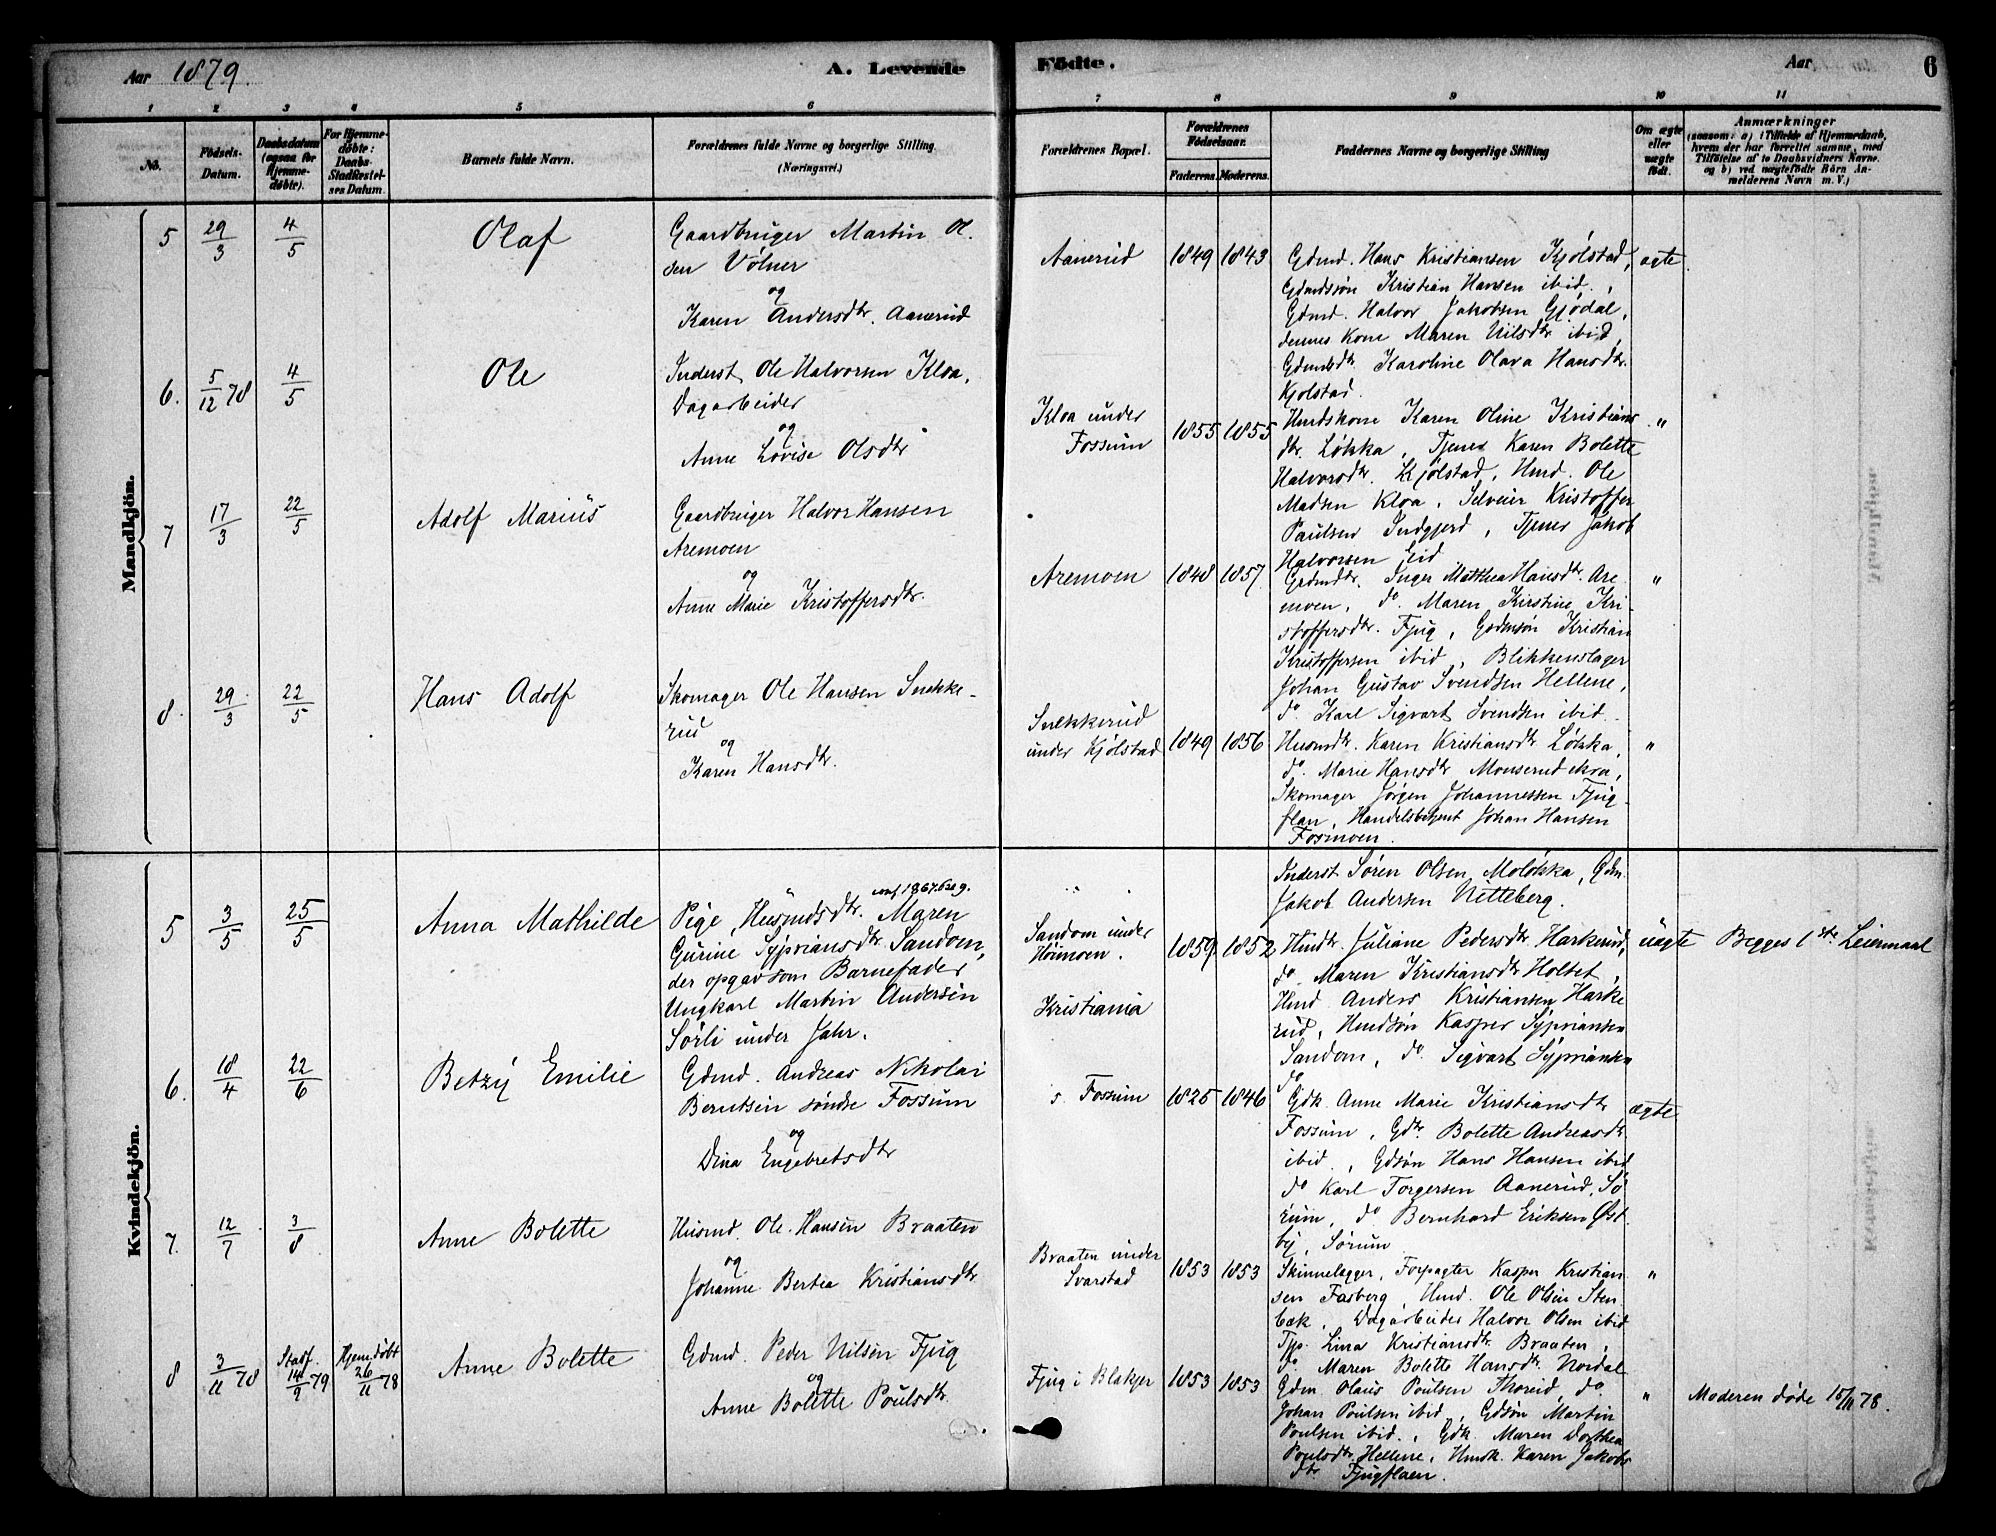 Aar 1879. A. Levende Fødte. Aar 6
1 2 3 4 5 6 7 8 9 10 11
No. Fødsels-Datum. Daabsdatum (ogsaa for Hjemmedøbte). For Hjemmedøbte: Daabs-Stadfæstelses Datum. Barnets fulde Navn. Forældrenes fulde Navne og borgerlige Stilling. (Næringsvei.) Forældrenes Bopæl. Forældrenes Fødselsaar. Faderens. Moderens. Faddernes Navne og borgerlige Stilling Om ægte eller uægte født. Anmærkninger (saasom: a) i Tilfælde af Hjemmedaab, hvem der har forrettet samme, med Tilføielse af to Daabsvidners Navne, og b) ved uægtefødte Børn Anmelderens Navn m. V.)
Mandkjön.
5 29/3 4/5 Olaf
Gaardbruger Martin Ol-
sen Völner
og
Karen Andersdtr. Aanerud
Aanerud 1849 1843
Gdmd. Hans Kristiansen Kjölstad, ægte
Gdmdsön Kristian Hansen ibid.,
Gdmd. Halvor Jakobsen Gjödal,
dennes Kone Maren Nilsdtr ibid,
Gdmdsdtr Karoline Olava Hansdtr.
Kjölstad.
6. 5/12 78 4/5 Ole
Inderst Ole Halvorsen Kloa,
Dagarbeider
og
Anne Lovise Olsdtr
Kloa under
Fossum 1855 1855
Hmdskone Karen Oline Kristians
dtr. Lökka, Tjener Karen Bolette "
Halvorsdtr. Kjölstad, Hmd. Ole
Madsen Kloa, Selveier Kristoffer
Paulsen Indgjerd, Tjener Jakob
Halvorsen Eid
7 17/3 22/5 Adolf Marius
Gaardbruger Halvor Hansen
Aremoen
og
Anne Marie Kristoffersdtr.
Aremoen 1848 1857.
Grdmdtr. Inger Matthea Hansdtr. Are- "
moen, do. Maren Kirstine Kri-
stoffersdtr. Fjug, Gdmsön Kristian
Kristoffersen ibid, Blikkenslager
Johan Gustav Svendsen Hellene,
do. Karl Sigvart Svendsen ibid.
8. 29/3 22/5 Hans Adolf
Skomager Ole Hansen Snekke-
rud
og
Karen Hansdtr.
Snekkerud
under Kjölstad 1849 1856
Husmdtr. Karen Kristiansdtr Lökka, "
do. Marie Hansdtr Monserudekra,
Skomager Jörgen Johannessen Fjug-
flan, Handelsbetjent Johan Hansen
Fosmoen.
Kvindekjön.
5 3/5 25/5 Anna Mathilde
conf 1867.
Pige, Husmdsdtr. Maren
Gurine Syprians dtr Sandom,
der opgav som Barnefader
Ungkarl Martin Andersen
Sörli under Jahr.
Sandom under
Höimoen. 1859. 1852
Kristiania
Inderst Sören Olsen Molökka, Gdm.
Jakob Andersen Netteberg.
Hmdtr. Juliane Pedersdtr Harkerud, uægte Begges 1ste Leiermaal
do. Maren Kristiansdtr Holtet,
Hmd Anders Kristiansen Harke
rud, Hmdsön Kasper Syprians en
Sandom, do. Sigvart Syprians en
do
6. 18/4 22/6 Betzy Emilie
Gdmd. Andreas Nikolai
Berntsen söndre Fossum
og
Dina Engebretsdtr
s. Fossum 1825 1846
Gdk. Anne Marie Kristiansdtr ægte
Fossum, Gdtr. Bolette Andreasdtr
ibid., Gdsön Hans Hansen ibid
do Karl Torgersen Aanerud, Sö
rum, do. Bernhard Eriksen Öst
by, Sörum
7. 12/7 3/8 Anne Bolette
Husmd. Ole Hansen Braaten
og
Johanne Bertea Kristiansdtr
Braaten under
Svarstad 1853 1853
Skinnelægger, Forpagter Kasper Kristian "
sen Farberg, Hmd. Ole Olsen Sten
bæk, Dagarbeider Halvor Olsen ibid
Tjp. Lina Kristiansdtr. Braaten,
do. Maren Bolette Hansdtr. Nordal
8 3/11 78 Stadf. 14/9 79 Hjemdöbt 26/11 78 Anne Bolette
Gdmd. Peder Nilsen Fjug
og
Anne Bolette Poulsdtr
Fjug i Blakjer 1853 1853
Gdm Olaus Poulsen Thoreid, do. " Moderen döde 15/11 78.
Johan Poulsen ibid, Gdsön Martin
Poulsen ibid., Gdk. Maren Dorthea
Poulsdtr. Hellene, Hmdk. Karen Jakobs
dtr Fjugflaen.